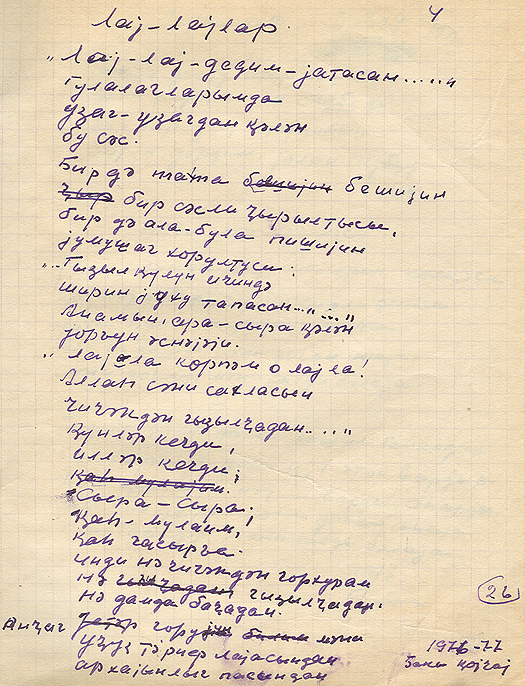 4
Лај-лајлар.
"Лај-лај-дедим-јатасан....."
Гулагларымда
узаг-узагдан ҝәлән
бу сәс.
Бир дә тахта бешијин бешијин
ҹыр бир сәсли ҹырылтысы,
бир дә ала-була пишијин
јумушаг хорултусу.
"..Гызыл ҝүлүн ичиндә
ширин јуху тапасан..."..."
Анамын, ара-сыра ҝәлән
јорғун әснәјији.
"Лајла көрпәм о лајла!
Аллаһ сәни сахласын
чичәкдән гызылҹадан...."
Ҝүнләр кечди,
илләр кечди;
ҝаһ мүлајим.
Сыра-сыра.
Ҝаһ-мүлаим,!
ҝаһ чағырға.
Инди нә чичәкдән горхурам
нә гызылҹадан гызылҹадан.
Нә дамда баҹадан.
Анҹаг горујун мәни
уҹуз тәриф лајласындан
архајынлыг пасындан
26
1976-77
Бакы